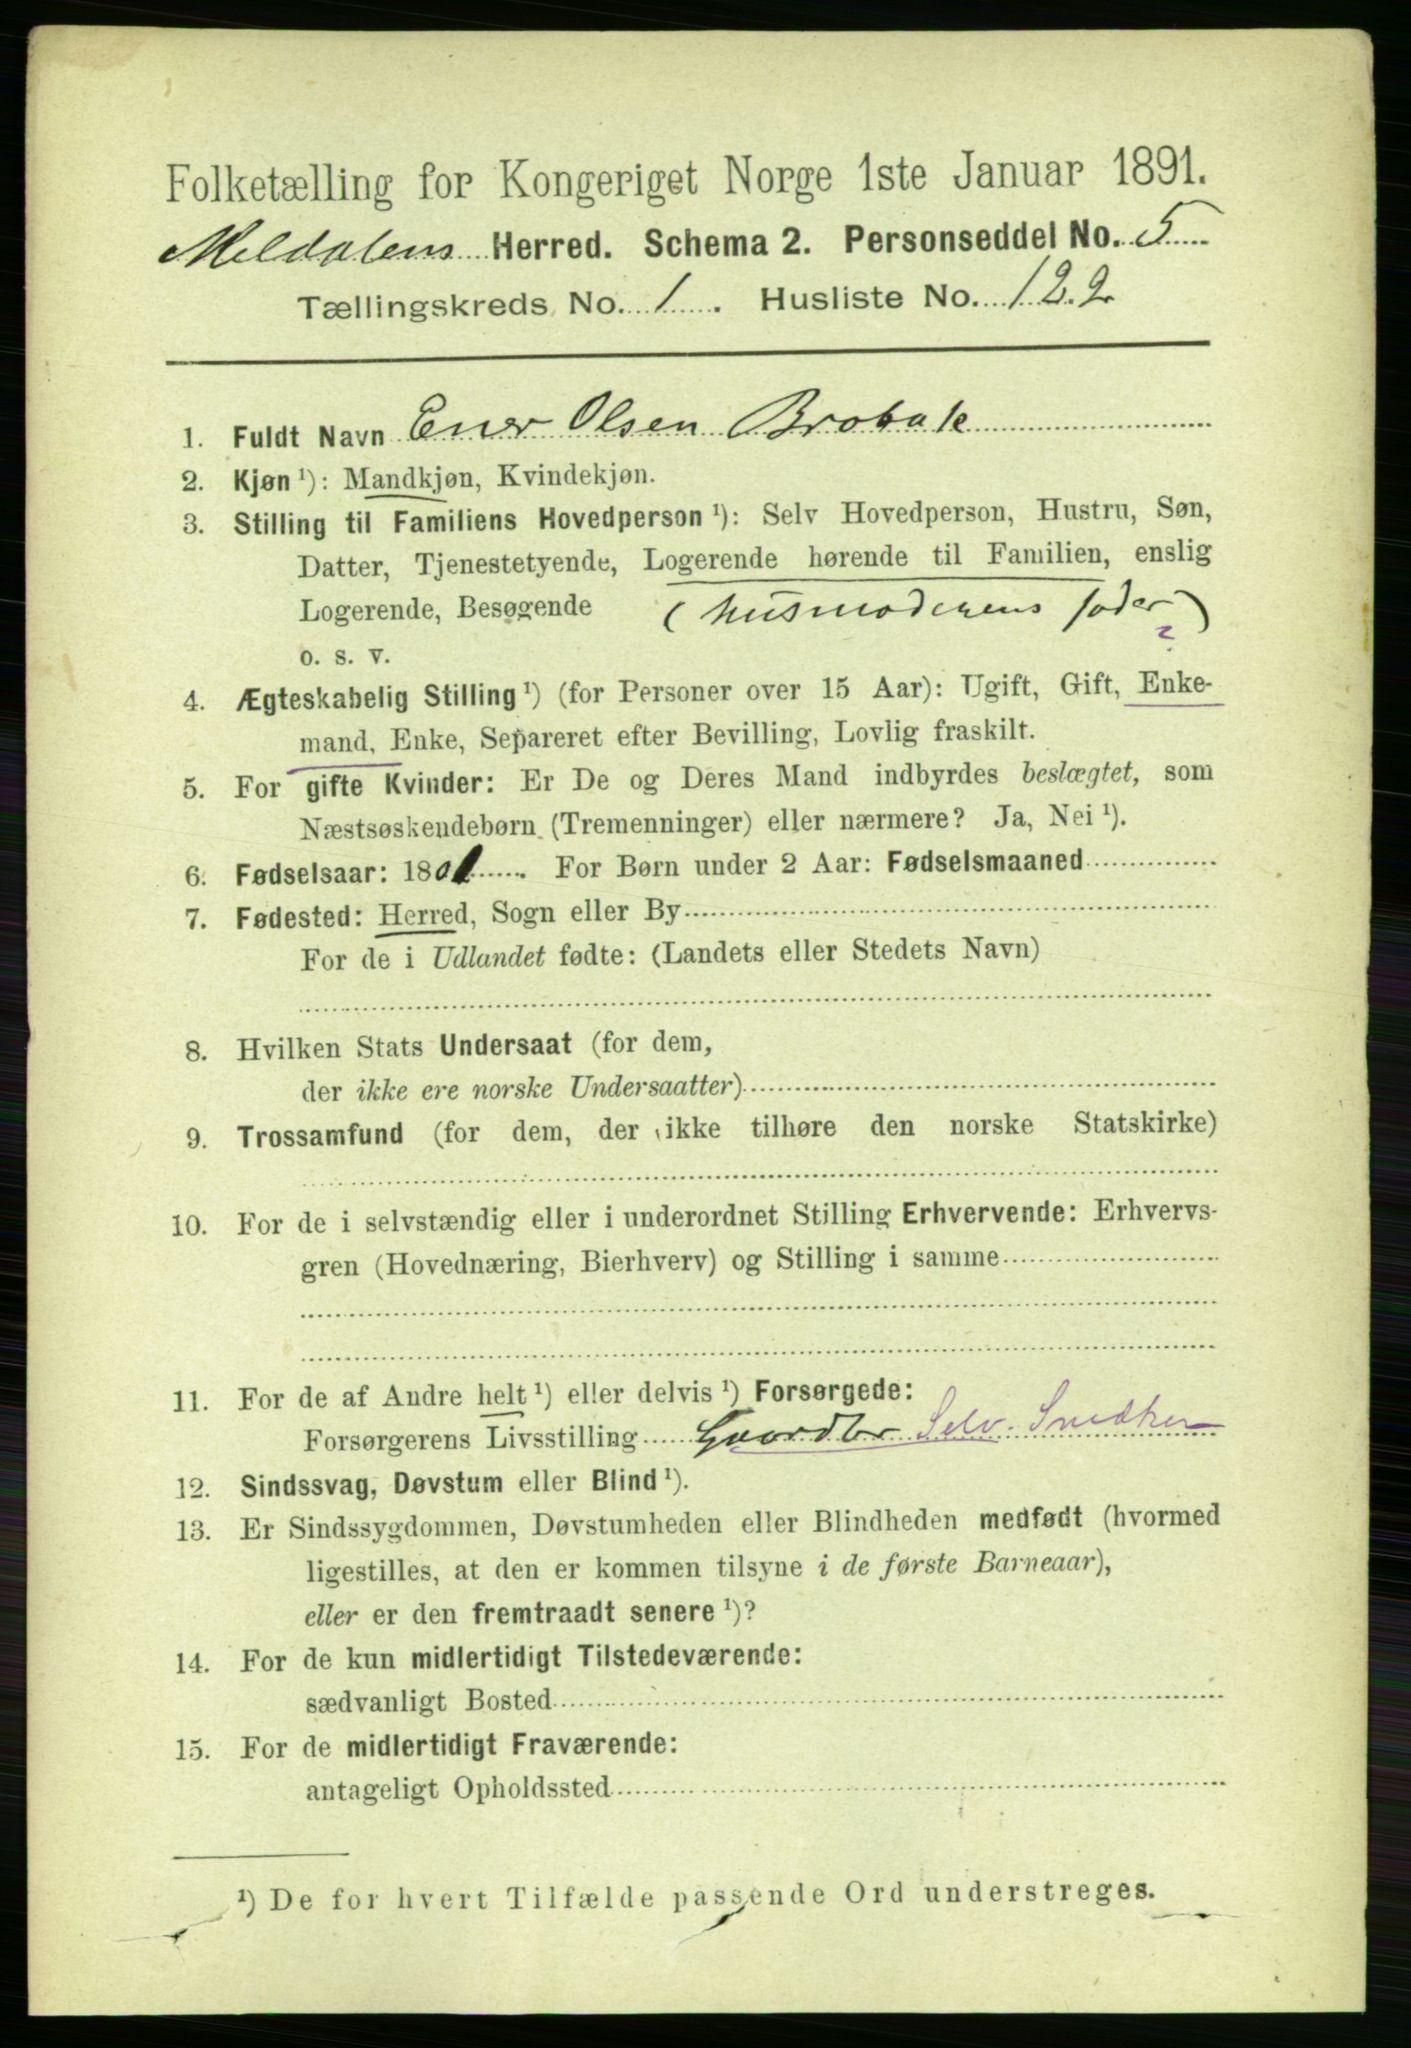 Folketælling for Kongeriget Norge 1ste Januar 1891.
Meldalens Herred. Schema 2. Personseddel No. 5
Tællingskreds No. 1. Husliste No. 122
1. Fuldt Navn Ener Olsen Brobak
2. Kjøn ¹): Mandkjøn, Kvindekjøn.
3. Stilling til Familiens Hovedperson ¹): Selv Hovedperson, Hustru, Søn,
Datter, Tjenestetyende, Logerende hørende til Familien, enslig
Logerende, Besøgende (Husmoderens fader)
?
o. s. v.
4. Ægteskabelig Stilling ¹) (for Personer over 15 Aar): Ugift, Gift, Enke-
mand, Enke, Separeret efter Bevilling, Lovlig fraskilt.
5. For gifte Kvinder: Er De og Deres Mand indbyrdes beslægtet, som
Næstsøskendebørn (Tremenninger) eller nærmere? Ja, Nei ¹).
6. Fødselsaar: 1801. For Børn under 2 Aar: Fødselsmaaned
7. Fødested: Herred, Sogn eller By
For de i Udlandet fødte: (Landets eller Stedets Navn)
8. Hvilken Stats Undersaat (for dem,
der ikke ere norske Undersaatter)
9. Trossamfund (for dem, der ikke tilhøre den norske Statskirke)
10. For de i selvstændig eller i underordnet Stilling Erhvervende: Erhvervs-
gren (Hovednæring, Bierhverv) og Stilling i samme
11. For de af Andre helt ¹) eller delvis ¹) Forsørgede:
Forsørgerens Livsstilling Gaardbr Selv. Snedker
12. Sindssvag, Døvstum eller Blind ¹).
13. Er Sindssygdommen, Døvstumheden eller Blindheden medfødt (hvormed
ligestilles, at den er kommen tilsyne i de første Barneaar),
eller er den fremtraadt senere ¹)?
14. For de kun midlertidigt Tilstedeværende:
sædvanligt Bosted
15. For de midlertidigt Fraværende:
antageligt Opholdssted
¹) De for hvert Tilfælde passende Ord understreges.